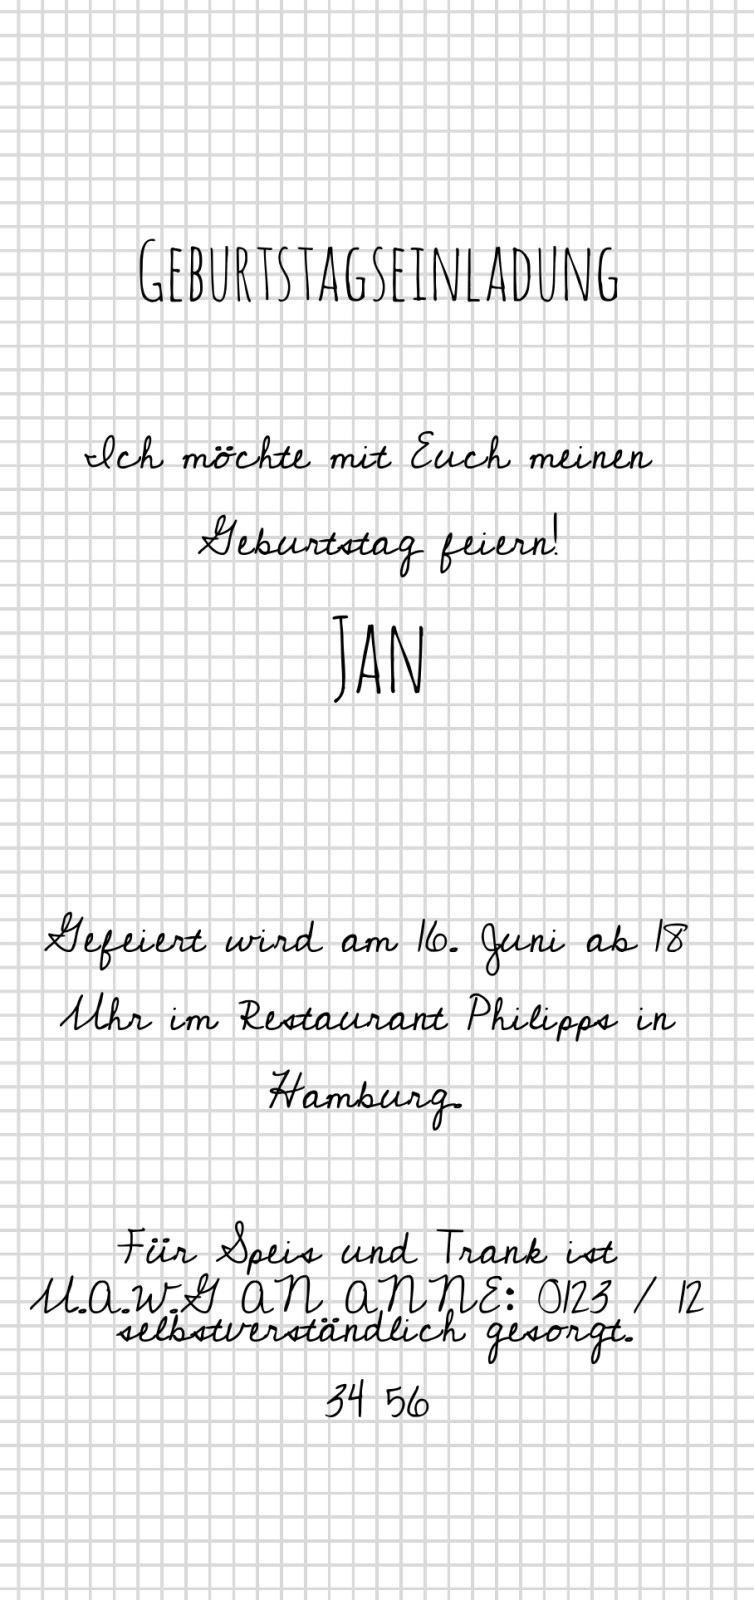 Geburtstagseinladung
Ich möchte mit Euch meinen
Geburtstag feiern!
Jan
Gefeiert wird am 16. Juni ab 18
Uhr im Restaurant Philipps in
Hamburg.
Für Speis und Trank ist
U.A.W.G AN ANNE: 0123 / 12
selbstverständlich gesorgt.
34 56